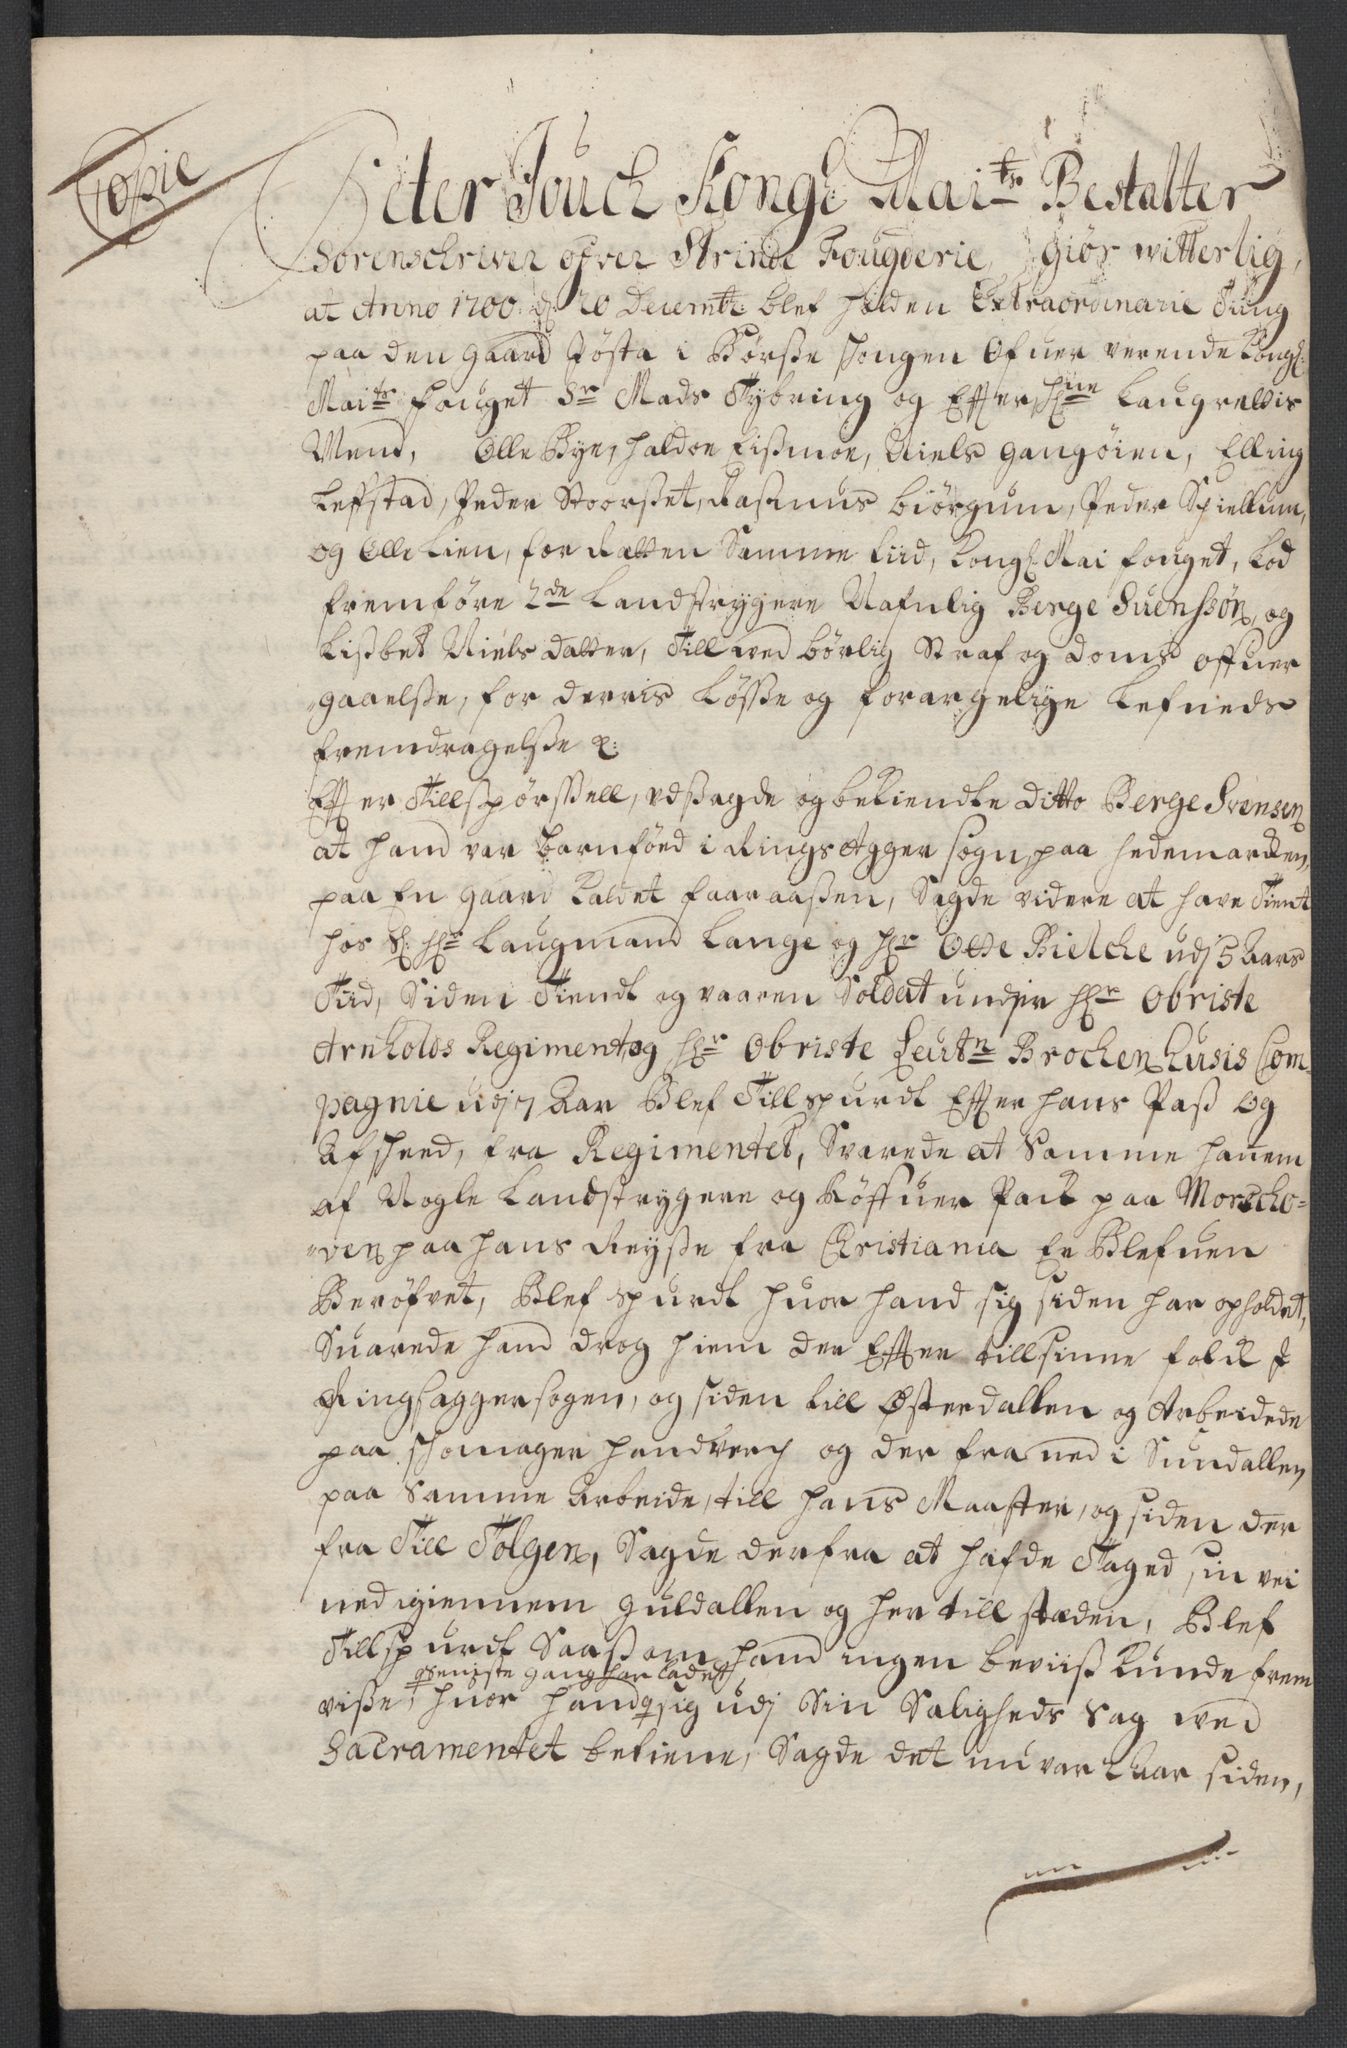 Copie
Peter Jouch Kongl Mai:ts Bestalter
Sorenschriver ofver Strinde Fougderie, giör witterlig,
at Anno 1700. d: 20 Decembr: blef holden Extraordinarie Ting
paa den gaard Jösta i Börsse schougen Ofuer verende Kongl:
Mai:ts fouget Sr Mads Tybring og Effterschr:ne Laugrettis
Mend, Olle Bye, Haldoe Eissmoe, Niels Gangöien, Elling
Leffstad, Peder Stoorsset, Rasmus Biörgum, Peder Spiellum,
og Olle Lien, for Retten Samme tiid, Kongl: Mai fouget, Lod
fremföre 2de Landstrygere Nafnlig Berge Suenssön, og
Lissbet Niels datter, Till med börlig Straf og doms offuer
gaaelsse, for derris lösse og forargelige Lefneds
fremdragelsse &:
Effter Tillspörssell, udssagde og bekiendte ditto Berge Svensen
at hand var barnföed i Rings Agger sogn, paa Hedemarcken,
paa En gaard kaldet Faaraassen, Sagde videre at have Tient
hos Sl: Hr Laugmand Lange og Hr Otte Bielche udj 5 Aars
Tiid, Siden Tiendt og vaaren Soldat under Hr Obriste
Arnholds Regiment, og Hr Obriste Leutn Brochenhusis Com-
pagnie udj 7 Aar Blef Tillspurdt Effter hans Pass Og
Afscheed, fra Regimentet, Svarede at Samme hannem
af Nogle Landstrygere og Röffuer Pack paa Morscho-
ven paa hans Reysse fra Christiania Er Blefuen
Beröfvet, Blef spurdt huor hand sig siden har opholdet,
Suarede hand drog hiem der Effter till sinne folck J
Ringsaggersogen, og siden till Østerdallen og Arbeidede
paa schomager handverch og der fra ned i Sundallen
paa Samme Arbeide, till hans Maaster, og siden der
fra Till Tolgen, Sagde derfra at hafde Taged sin vei
ned igiennem Guldallen og her till stæden, Blef
Tillspurdt Saassom hand ingen beviiss kunde frem
seniste gang har ladet
visse, huor hand sig udj Sin Saligheds Sag med
Sacramentet betiene, Sagde det nu var 2 Aar siden,